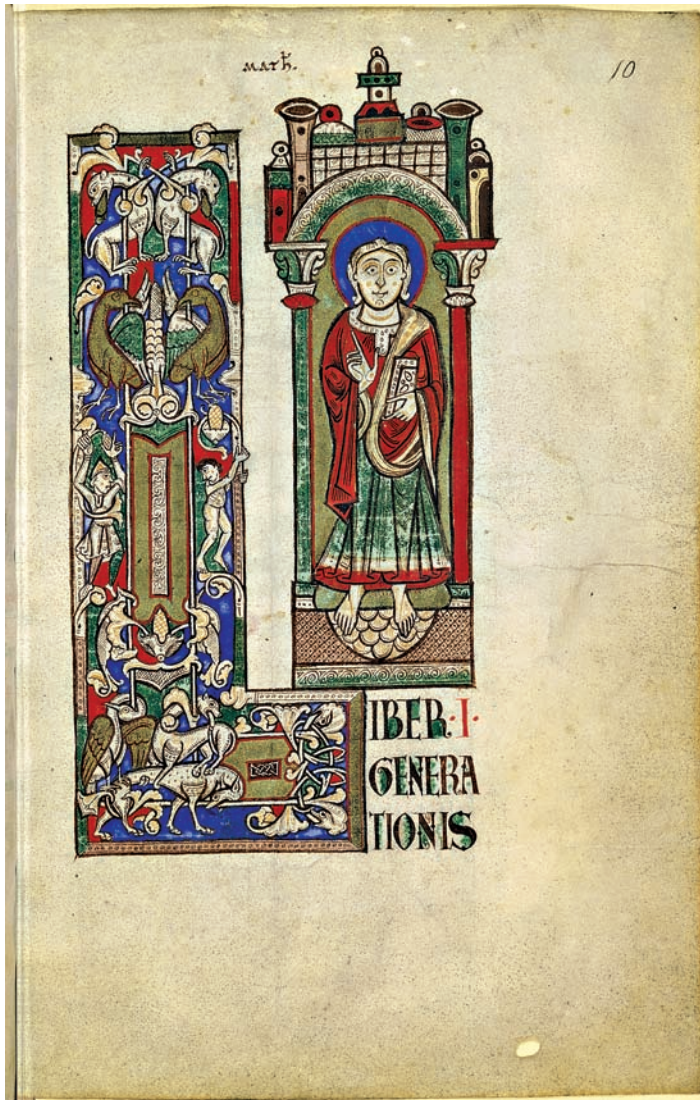 math.
10
LIBER·I·
GENERA
TIONIS